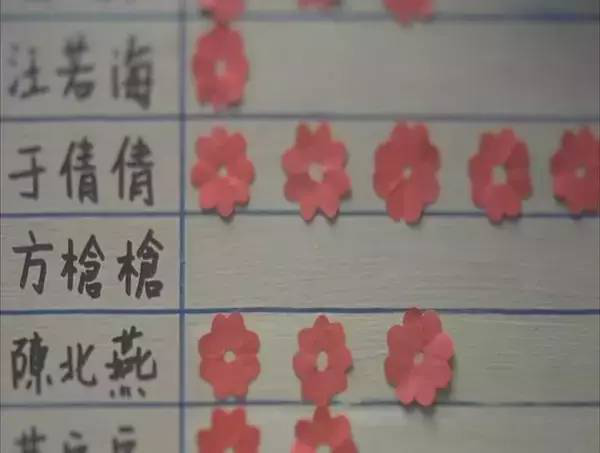 汪若海
于倩倩
方槍槍
陳北燕